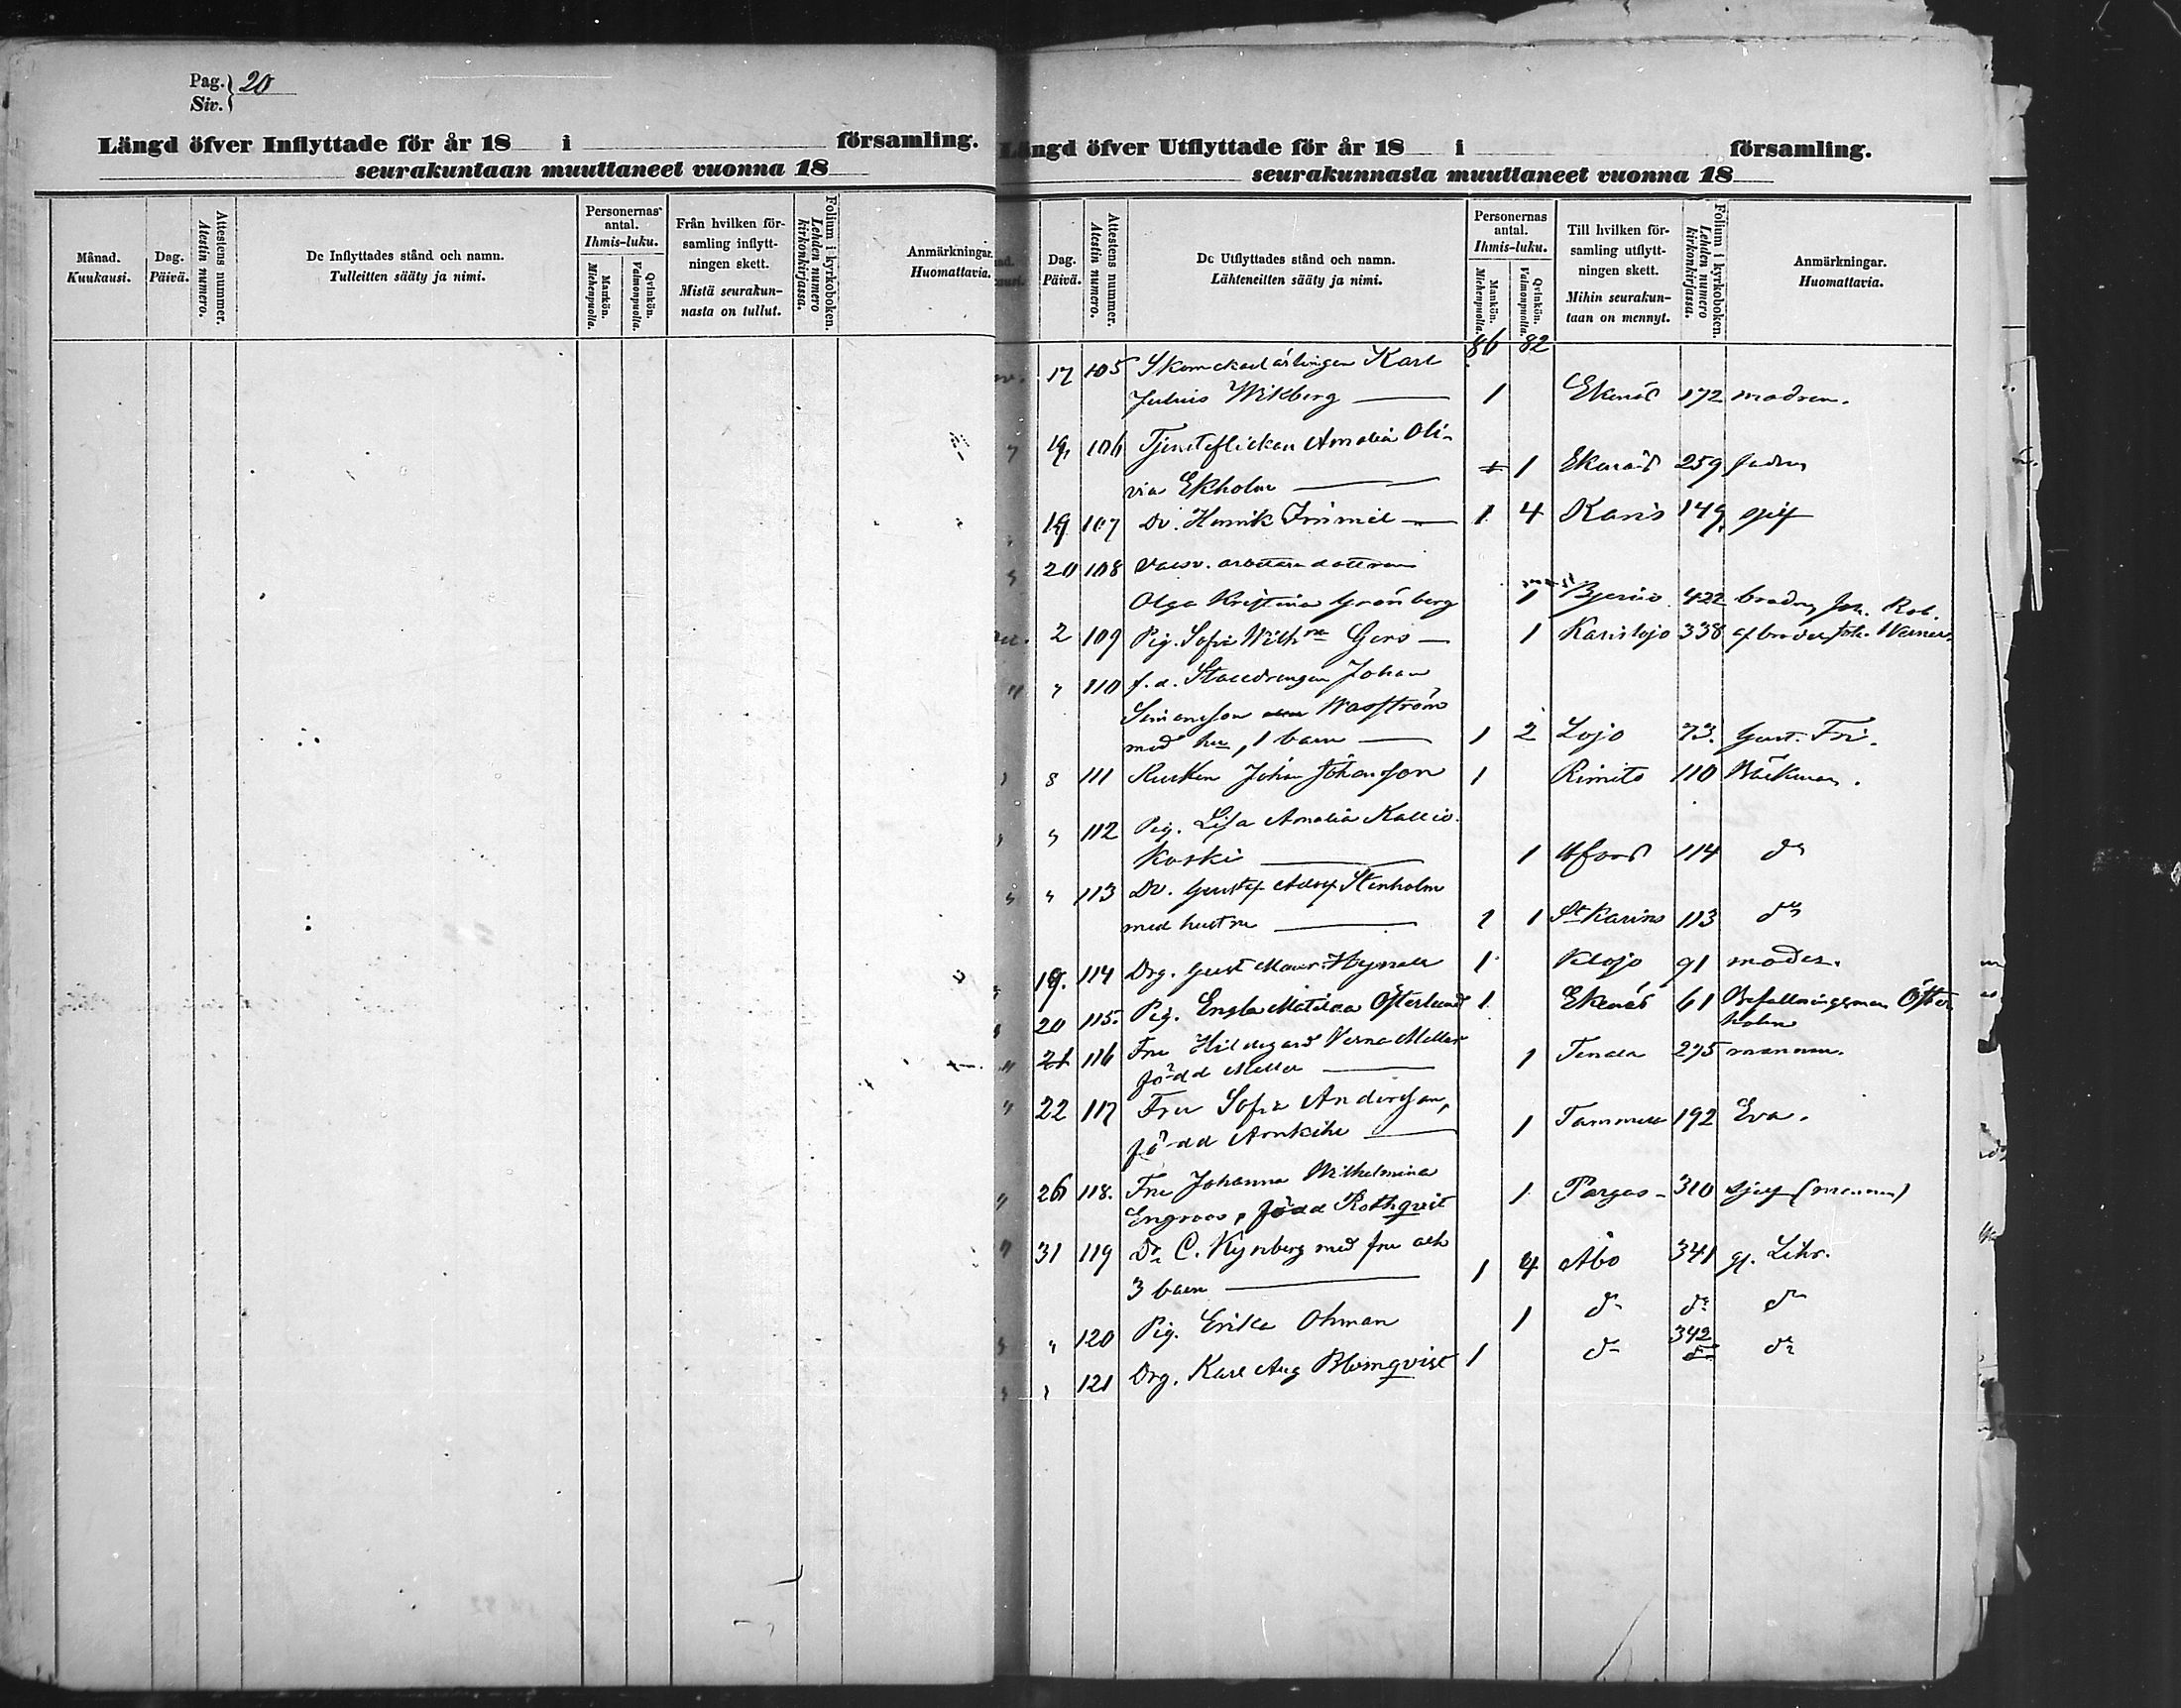 Pag. 20
Siv.
Längd öfver Inflyttade för år 18 i församling.
seurakuntaan muuttaneet vuonna 18
Månad.
Kuukausi.
Dag.
Päivä.
Attestens nummer.
Atestin numero.
De Inflyttades stånd och namn.
Tulleitten sääty ja nimi.
Personernas
antal.
Ihmis-luku.
Mankön.
Miehenpuolia.
Qvinkön.
Vaimonpuolia.
Från hvilken för-
samling inflytt-
ningen skett.
Mistä seurakun-
nasta on tullut.
Folium i kyrkoboken.
Lehden numero
kirkonkirjassa.
Anmärkningar.
Huomattavia.
Längd öfver Utflyttade för år 18 i församling.
seurakunnasta muuttaneet vuonna 18
Dag.
Päivä.
Attestens nummer.
Atestin numero.
De Utflyttades stånd och namn.
Lähteneitten sääty ja nimi.
Personernas
antal.
Ihmis-luku.
Mankön.
Miehenpuolia.
Qvinkön.
Vaimonpuolia.
Till hvilken för-
samling utflytt-
ningen skett.
Mihin seurakun-
taan on mennyt.
Folium i kyrkoboken.
Lehden numero
kirkonkirjassa.
Anmärkningar.
Huomattavia.
86 82
17 105 Karl
Julius Wikberg 1 Ekenäs 172 modren.
19 106 Tjensteflickan Amalia Oli-
via Ekholm 1 Ekenäs 259 fadren
19 107 Dr. Henrik 1 4 Karis 149
20 108 dottren
Olga Kristina Grönberg 1 Bjerno 422 brodren Joh. Rob.
2 109 Pig. Sofia Wilhna Gers 1 Karislojo 338 af broder Joh. Werner
" 110 f.d. Stalldrengen Johan
Simonsson Wasström
med hu, 1 barn 1 2 Lojo 73. Gust. Fri.
8 111 Johan Johansson 1 Rimito 110 Bäckman.
" 112 Pig. Lisa Amalia Kallio-
koski 1 114 do
" 113 Dr. Gustaf Adolf Stenholm
med hustru 1 1 St Karins 113 do
19. 114 Drg. Gust 1 Klojo 91 moder.
20 115. Pig. Engla Matilda Österlund 1 Ekenäs 61 Befallningsman Öster-
holm
21 116 Fru Hildegard Verna Meller
född Meller 1 Tenala 275 mannen.
22 117 Fru Sofia Andersson,
född 1 Tammela 192 Eva.
26 118. Fru Johanna Wilhelmina
Engroos, född Rothqvist 1 Pargas 310 sjelf (mannen)
31 119 Dr C. Kynberg med fru och
3 barn 1 4 Åbo 341
" 120 Pig. Erika Öhman 1 do do do
" 121 Drg. Karl Aug Blomqvist 1 do 342 do